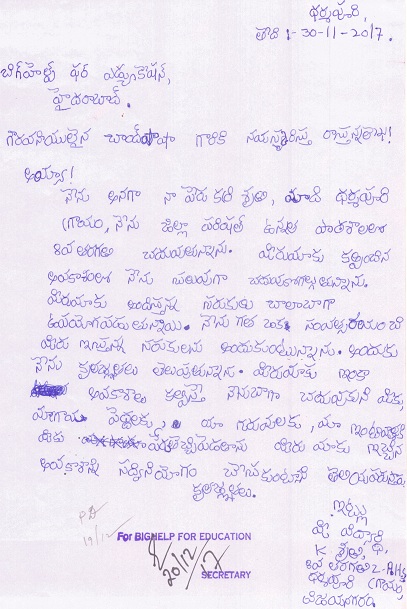 ధర్మపురి,
తేది :- 30-11-2017.
బిగ్‌హెల్ప్ ఫర్ ఎడ్యుకేషన్,
హైదరాబాద్.
గౌరవనీయులైన చాంద్‌పాషా గారికి నమస్కరిస్తూ వ్రాస్తున్నాను!
అయ్యా!
నేను అనగా నా పేరు కె. శ్రుతి, మాది ధర్మపురి
గ్రామం, నేను జిల్లా పరిషత్ ఉన్నత పాఠశాలలో
8వ తరగతి చదువుతున్నాను. మీరు మాకు కల్పించిన
అవకాశంతో నేను బాగా చదువుకోగల్గుతున్నాను.
మీరు మాకు అందిస్తున్న సరుకులు చాలా బాగా
ఉపయోగపడుతున్నాయి. నేను గత ఒక సంవత్సరం నుంచి
మీరు ఇస్తున్న సరుకులను అందుకుంటున్నాను. అందుకు
నేను కృతజ్ఞతలు తెలుపుతున్నాను. మీరు మాకు ఇంకా
అవకాశాలు కల్పిస్తే నేను బాగా చదువుకుని మీకు,
మా గ్రామ పెద్దలకు, మా గురువులకు, మా
మీకు పేరు తెచ్చిపెడతాను మీరు మాకు ఇచ్చిన
అవకాశాన్ని సద్వినియోగం చేసుకుంటానని తెలియపరుస్తూ
కృతజ్ఞతలు.
ఇట్లు
మీ విద్యార్థి
K. శ్రుతి,
8వ తరగతి Z.P.H.S
ధర్మపురి (గ్రా)
విజయనగరం.
For BIGHELP FOR EDUCATION
20/12/17
SECRETARY